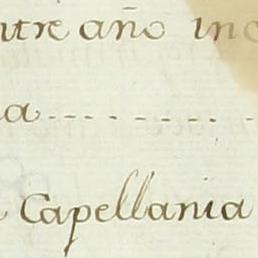 ntre año inc
a - - - - - - - -
a Capellania